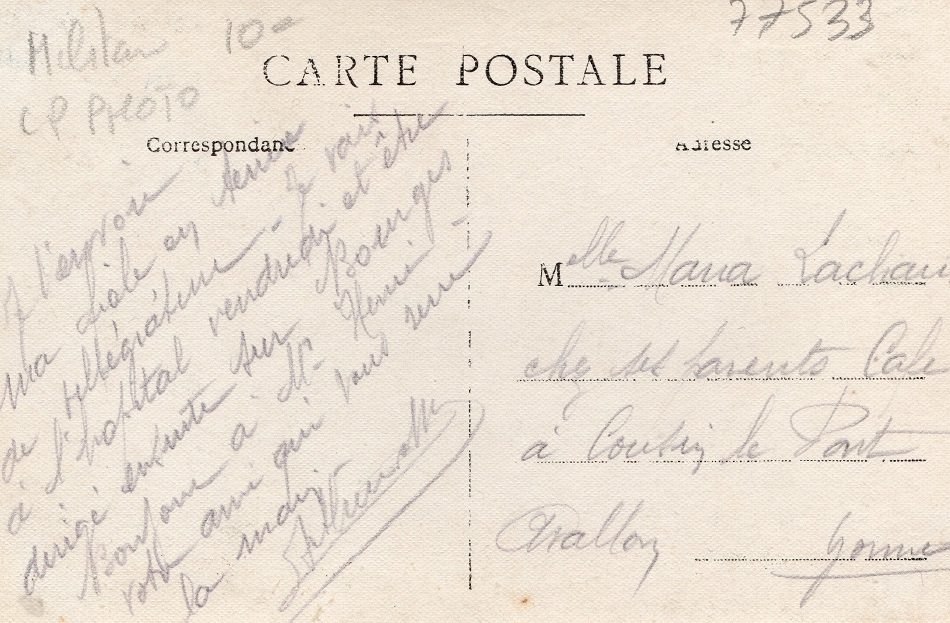 77533
Militair 10-
CP PHOTO
CARTE POSTALE
Correspondance
Adresse
J l'envoie
ma fiole en tenue
de - Je vais
à l'hopital vendredi et être
dirigé ensuite sur Bourges
Bonjour à Mr Henri -
votre ami qui vous serre
la main
Melle Maria Lachau
chez ses parents Cafe
à Cousin le Pont
Avallon Yonne